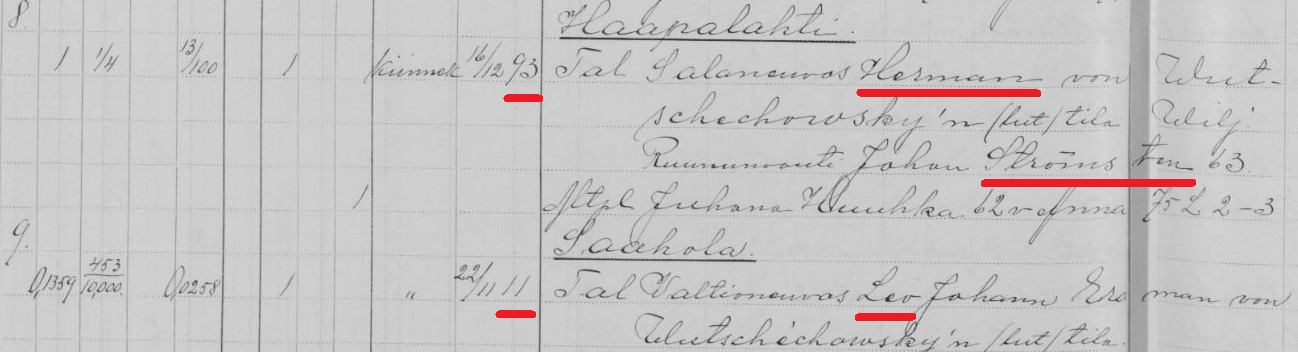 8.
Haapalahti.
1 1/4 13/100 1 kiinnek 16/12 93 Tal Salaneuvos Herman von Wut-
schechowsky'n /lut/ tila Wilj.
Ruununvouti Johan Ströms ten 63.
1 Juhana 62 v Anna 75 L 2-3
9.
Saahola.
0,1359 453/10,000. 0,0258 1 " 22/11 11 Tal Valtioneuvos Leo Johann Ero man von
Wutschéchowsky'n /lut/ tila.